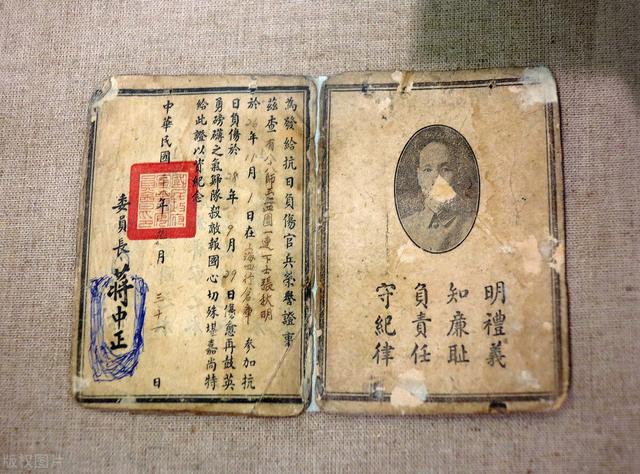 明禮義
知廉恥
負責任
守紀律
為發給抗日負傷官兵榮譽證事
茲查有八師團一連下士張秋明
於26年11月1日在上海四行倉庫參加抗
日負傷於28年9月29日傷愈再鼓英
勇磅礴之氣歸隊殺敵報國心切殊堪嘉尚特
給此證以資紀念
中華民國年月三十一日
委員長蔣中正
版权图片